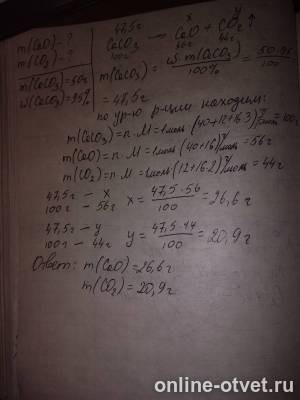 m(CaO) - ?
m(CO₂) - ?
m(CaCO₃) = 50г
w(CaCO₃) = 95%
47,5г x y
CaCO₃ → CaO + CO₂ ↑
100г 56г 44г
m(CaCO₃) = w · m(CaCO₃) / 100% = 50·95 / 100
= 47,5г
по ур-ю р-ции находим:
m(CaCO₃) = n · M = 1моль (40+12+16·3) г/моль = 100г
m(CaO) = n · M = 1моль (40+16) г/моль = 56г
m(CO₂) = n · M = 1моль (12+16·2) г/моль = 44г
47,5г - x
100г - 56г x = 47,5·56 / 100 = 26,6г
47,5г - y
100г - 44г y = 47,5·44 / 100 = 20,9г
Ответ: m(CaO) = 26,6г
m(CO₂) = 20,9г
online-otvet.ru